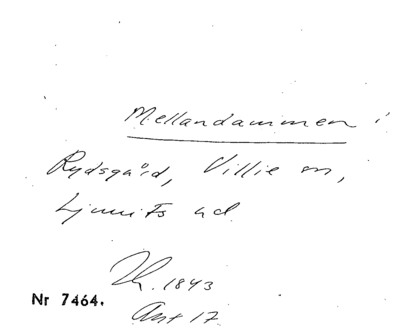 Mellandammen i
Rydsgård, Villie sn,
Ljunits hd.
Th. 1843
Ant 17.
Nr 7464.